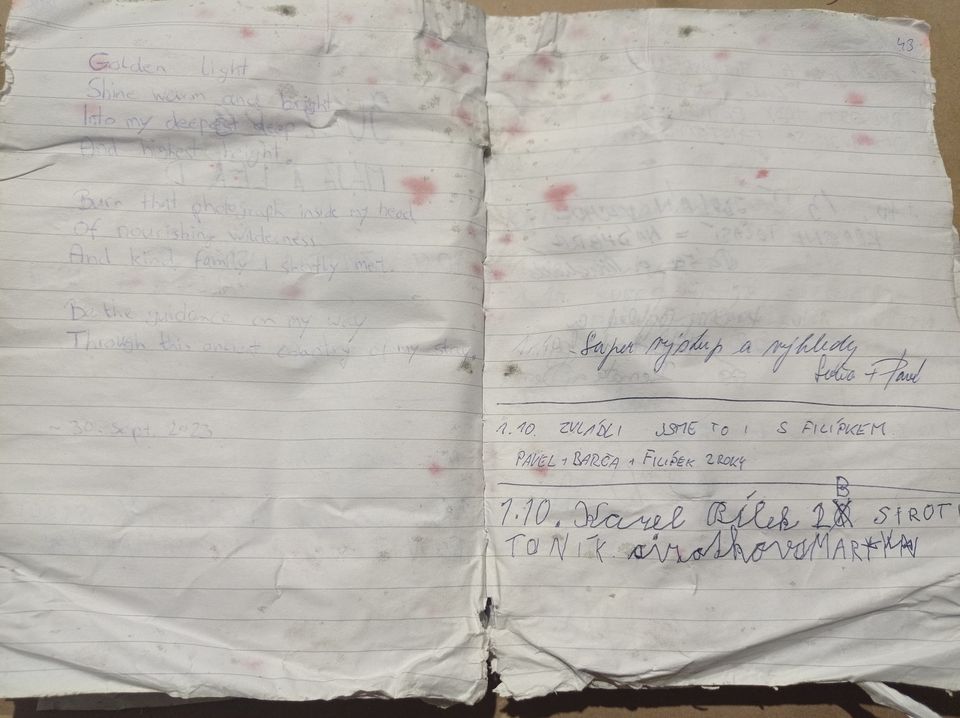 Golden light
Shine warm and bright
Into my deepest deep
And highest height.
Burn that photograph inside my head
Of nourishing wilderness
And kind family I shortly met.
Be the guidance on my way
Through this ancient country of my story
~ 30. Sept. 2023
43
Super výstup a výhledy
+ Pavel
1.10. ZVLÁDLI JSME TO I S FILÍPKEM
PAVEL + BARČA + FILÍPEK 2 ROKY
1.10. Karel Bílek 2B SIROT
TONÍK